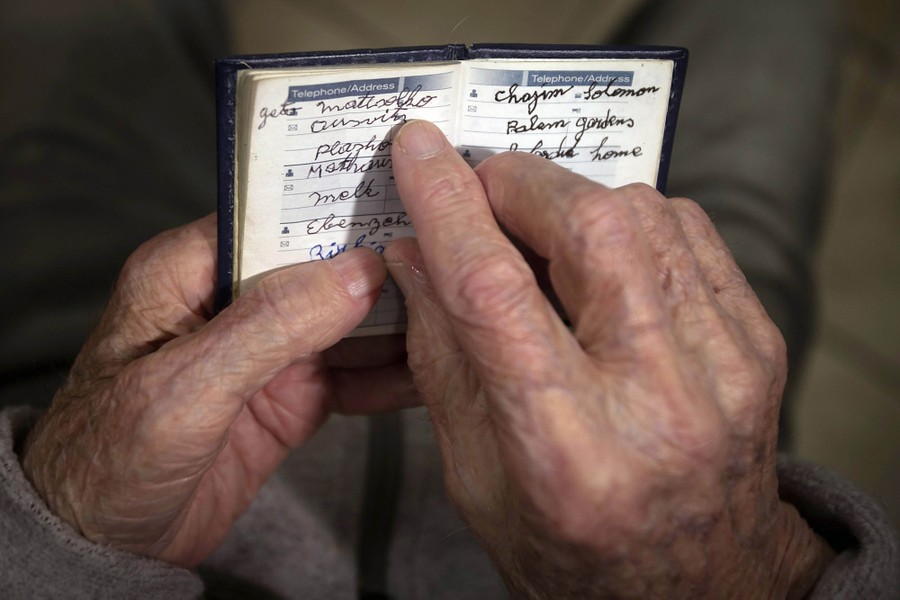 Telephone/Address
geto Mattsofho
Ausvitz
Plasho
Mathaus
Melk
Ebenzeh
Telephone/Address
Chajim Solomon
Palam gardens
home